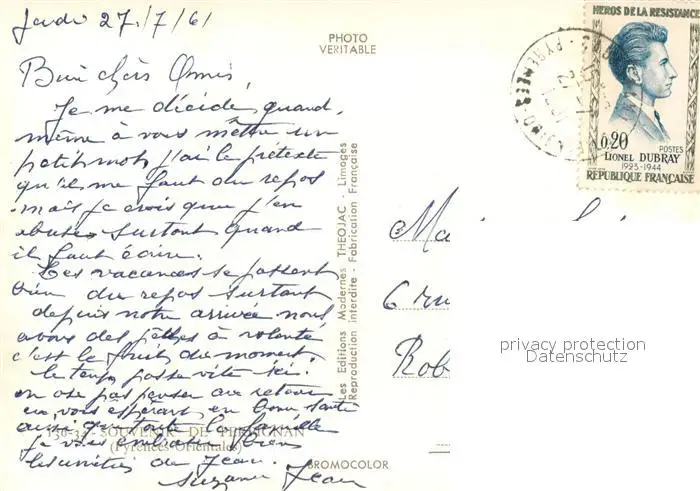 Jeudi 27/7/61
Bien chers Amis,
Je me décide quand,
même à vous mettre un
petit mot, j'ai le prétexte
qu'il me faut du repos
mais je crois que j'en
abuse surtout quand
il faut écrire.
Les vacances se passent
bien du repos surtout
depuis notre arrivée nous
avons des pêches à volonté
c'est le fruit du moment.
le temps passe vite ici.
on ose pas penser au retour
en vous espérant en bonne santé
ainsi que toute la famille
je vous
de Jean.
Suzanne Jean
130-34 - SOUVENIR DE PERPIGNAN
(Pyrénées-Orientales)
PHOTO
VERITABLE
Les Editions Modernes THEOJAC - Limoges
Reproduction interdite - Fabrication Française
BROMOCOLOR
HEROS DE LA RESISTANCE
0,20
POSTES
LIONEL DUBRAY
1923-1944
REPUBLIQUE FRANÇAISE
6 rue
Rob
privacy protection
Datenschutz